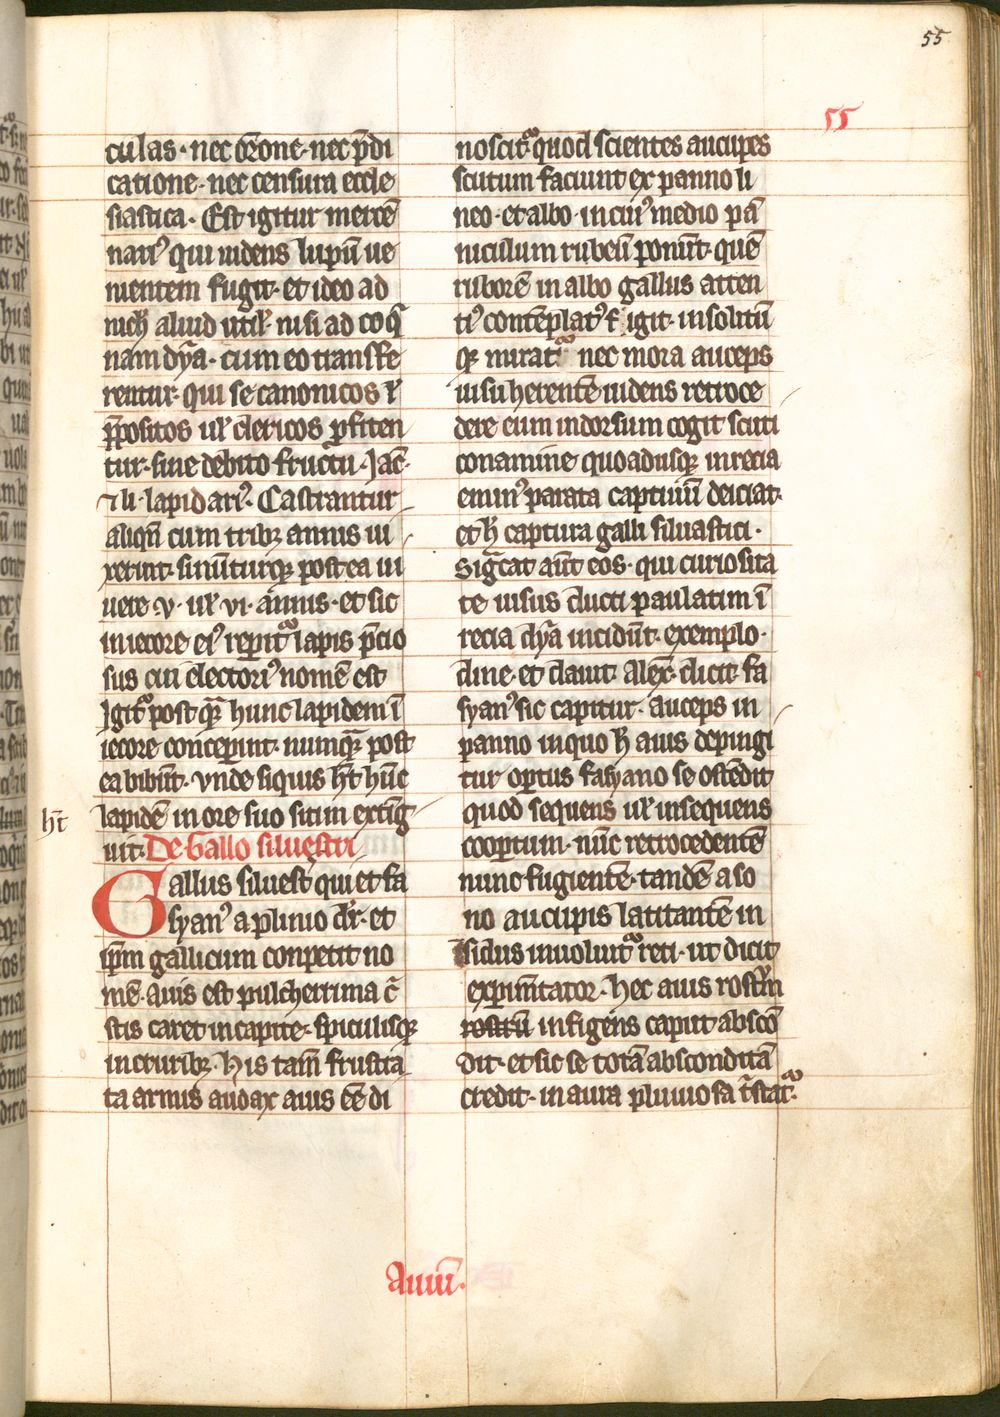 55
55
culas · nec o̅r̅one · nec p̅di
catione · nec censura eccle
siastica · Est igitur merce̅
nariꝰ qui uidens lupu̅ ue
nientem fugit · et ideo ad
nich̅ aliud util̅ · nisi ad coq̅
nam dy̅a · cum eo transfe
rentur · qui se canonicos ł
p̅positos ul̅ clericos ꝓfiten
tur · sine debito fructu · Jac̅ ·
⁊ li · lapidariꝰ · Castrantur
aliqn̅ cum tribꝫ annis ui
xerint · sinu̅turqꝫ postea ui
uere · v · ul̅ · vi · annis · et sic
in iecore eiꝰ reperit᷑ lapis p̅cio
sus cui electoriꝰ nome̅ est
Igit᷑ post q̅ᷓ hunc lapidem i̅
iecore conceperint · numqᷓ post
ea bibu̅t · vnde siquis h̅t hu̅c
h̅t
lapide̅ in ore suo sitim exti̅g
uit · De Gallo siluestri
Gallus siluest̅ qui et fa
syanꝰ a plinio dr̅ · et
ip̅m gallicum conpetit no
me̅ · auis est pulcherrima c̅
stis caret in capite · spiculisqꝫ
in cruribꝫ · his tam̅ frustra
ta armis audax auis ee̅ di
noscit᷑ quod scientes aucupes
scutum faciunt ex panno li
neo · et albo · in cuiꝰ medio pa̅
niculum rubeu̅ ponu̅t · que̅
ruborē in albo gallus atten
tiꝰ contemplatꝰ f igit · insolitu̅
qꝫ mirat᷑ nec mora auceps
uisu herente̅ uidens retroce
dere eum in dorsum cogit scuti
conamine quoadusqꝫ in recia
eminꝰ parata captiuu̅ deiciat ·
et h̅ captura galli siluastici ·
sig̅cat au̅t eos · qui curiosita
te uisus ducti paulatim i̅
recia dy̅a incidu̅t · exemplo ·
dine · et dauit · Alex̅ · dicit · fa
syanꝰ sic capitur · auceps in
panno in quo h̅ auis depingi
tur oꝑtus fasyano se oste̅dit
quod sequens ul̅ insequens
cooꝑtum · nu̅c retrocedente̅
nunc fugiente̅ · tande̅ a so
no aucupis latitante̅ in
sidus inuoluit᷑ reti · ut dicit
experim̅tator · Hec auis rostr̅m
rostru̅ infigens caput absco̅
dit · et sic se tota̅ abscondita̅
credit · in aura pluuiosa t̅stat᷑ ·
Auiu̅ ·